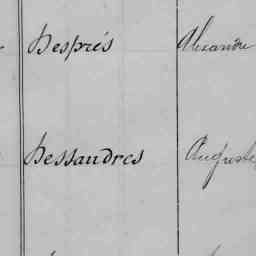 Després Alexandre
Dessandres Auguste